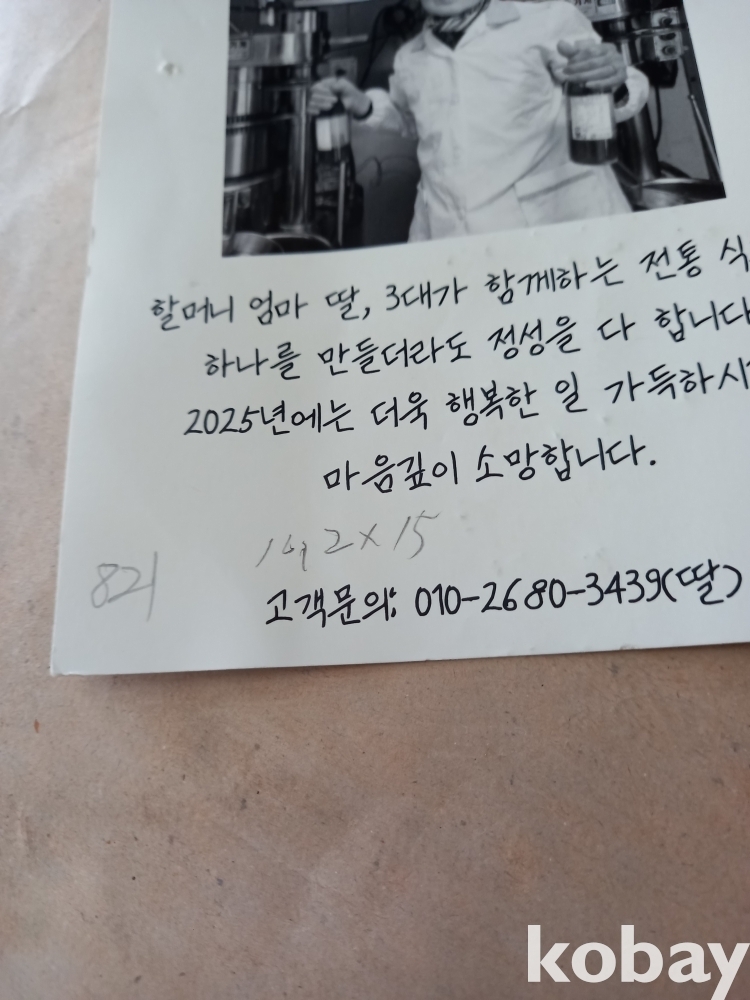 할머니 엄마 딸, 3대가 함께하는 전통 식
하나를 만들더라도 정성을 다 합니다
2025년에는 더욱 행복한 일 가득하시
마음깊이 소망합니다.
2x15
821
고객문의: 010-2680-3439(딸)
kobay